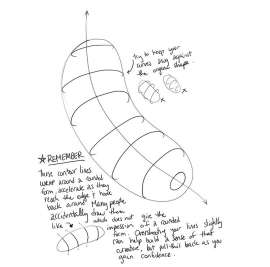 Try to keep your
curves snug against
the organic shape.
★ REMEMBER
These contour lines
wrap around a rounded
form, accelerate as they
reach the edge & hook
back around. Many people
accidentally draw them
like
which does not give the
impression of a rounded
form. Overshooting your lines slightly
can help build a sense of that
curvature, but pull that back as you
gain confidence.